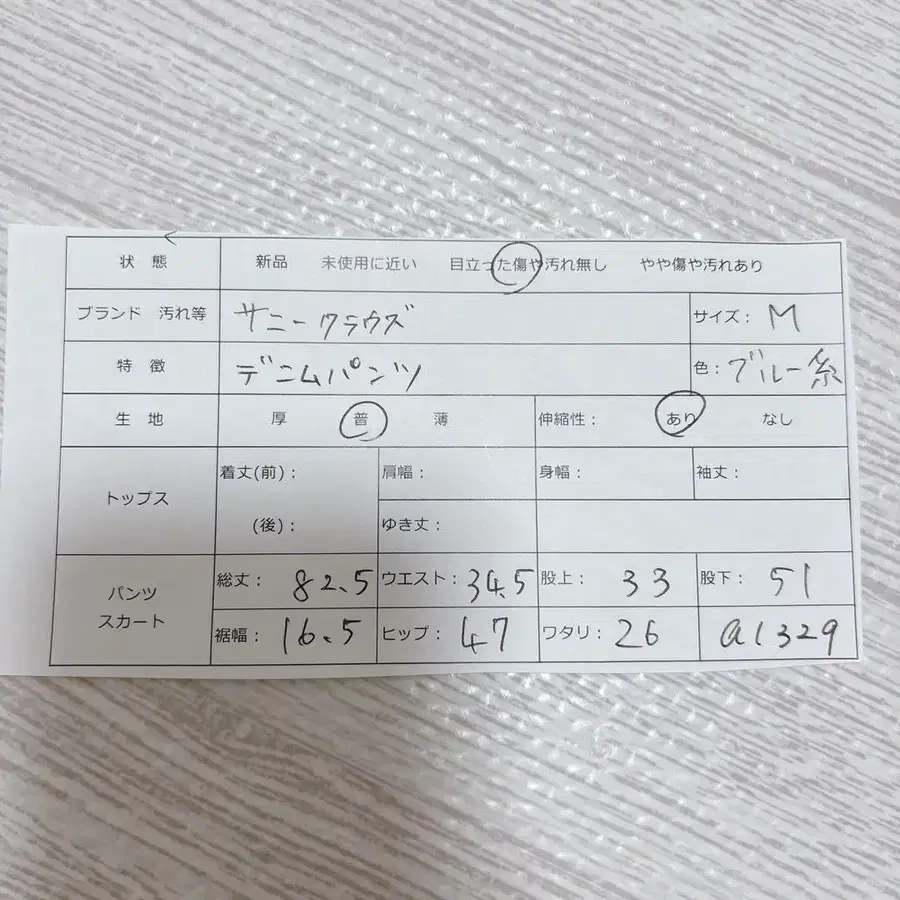 状 態 新品 未使用に近い 目立った傷や汚れ無し やや傷や汚れあり
ブランド 汚れ等 サニークラウズ サイズ： M
特 徴 デニムパンツ 色： ブルー系
生 地 厚 普 薄 伸縮性： あり なし
トップス 着丈(前)： 肩幅： 身幅： 袖丈：
(後)： ゆき丈：
パンツ スカート 総丈： 82.5 ウエスト： 34.5 股上： 33 股下： 51
裾幅： 16.5 ヒップ： 47 ワタリ： 26 a1329